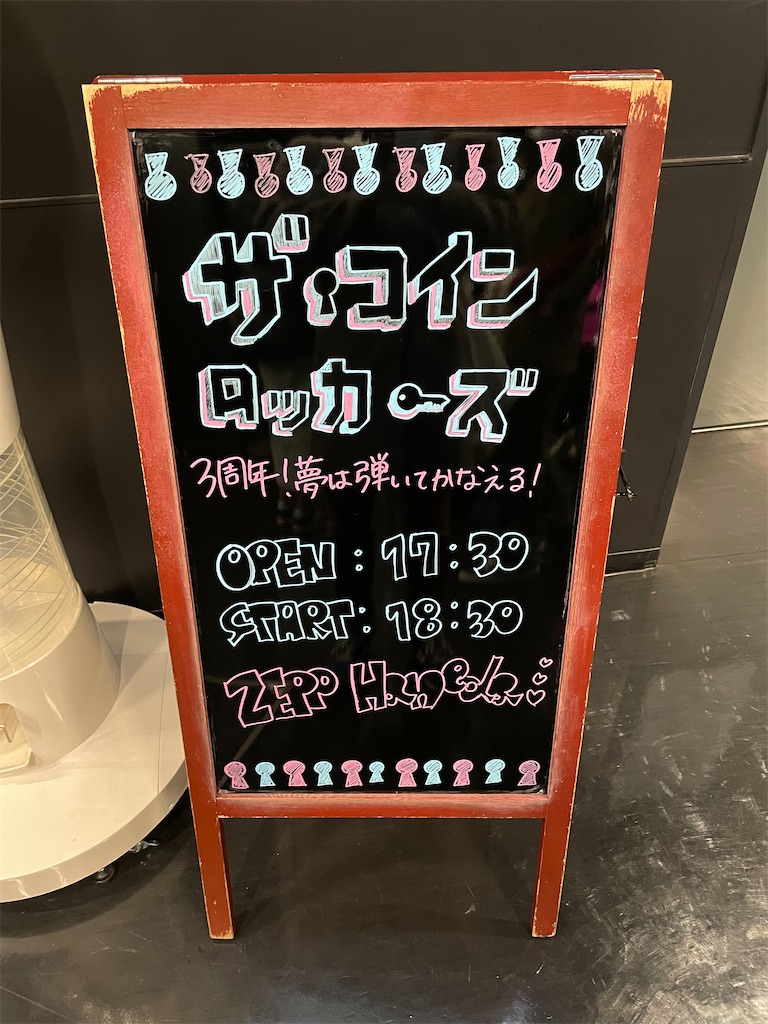 ザ・コイン
ロッカーズ
3周年!夢は弾いてかなえる!
OPEN : 17:30
START: 18:30
ZEPP Haneda